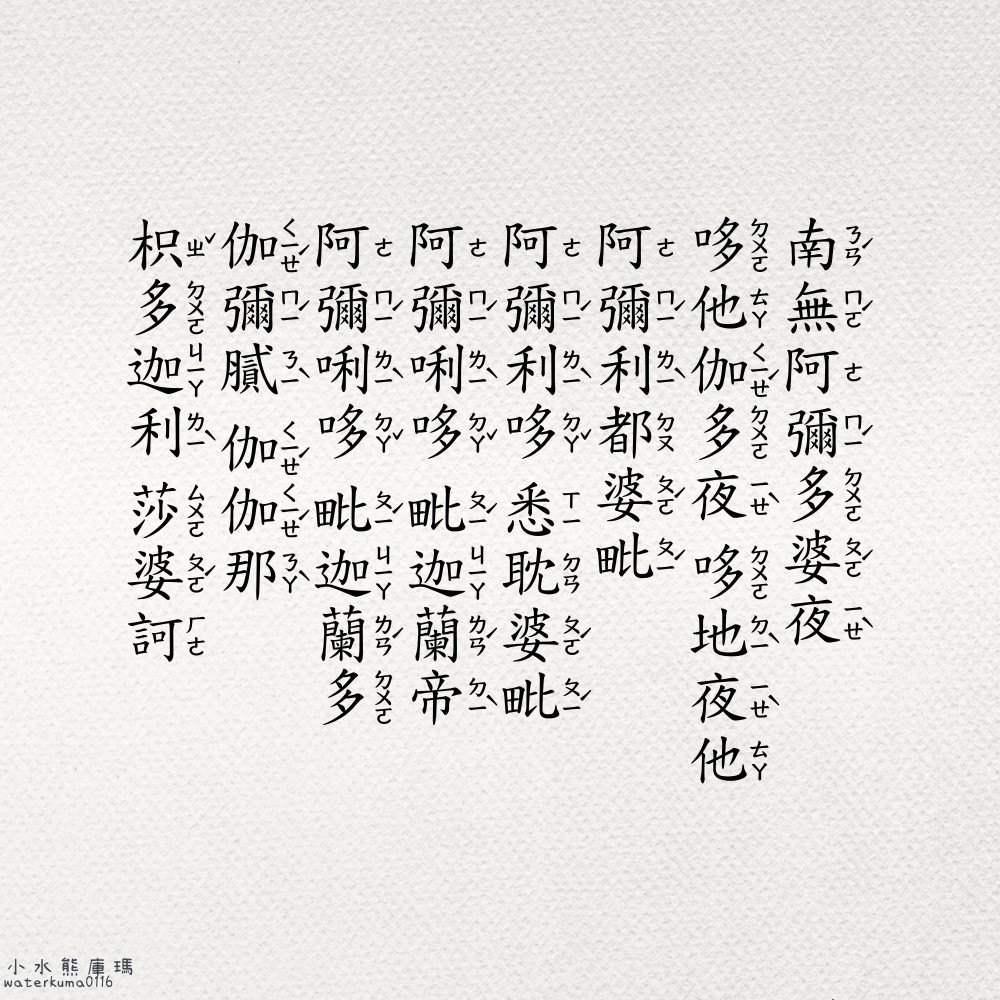 南ㄋㄢˊ無ㄇㄛˊ阿ㄜ彌ㄇㄧˊ多ㄉㄨㄛ婆ㄆㄛˊ夜ㄧㄝˋ
哆ㄉㄨㄛ他ㄊㄚ伽ㄑㄧㄝˊ多ㄉㄨㄛ夜ㄧㄝˋ 哆ㄉㄨㄛ地ㄉㄧˋ夜ㄧㄝˋ他ㄊㄚ
阿ㄜ彌ㄇㄧˊ利ㄌㄧˋ都ㄉㄡ婆ㄆㄛˊ毗ㄆㄧˊ
阿ㄜ彌ㄇㄧˊ利ㄌㄧˋ哆ㄉㄚˇ 悉ㄒㄧ耽ㄉㄢ婆ㄆㄛˊ毗ㄆㄧˊ
阿ㄜ彌ㄇㄧˊ唎ㄌㄧˋ哆ㄉㄚˇ 毗ㄆㄧˊ迦ㄐㄧㄚ蘭ㄌㄢˊ帝ㄉㄧˋ
阿ㄜ彌ㄇㄧˊ唎ㄌㄧˋ哆ㄉㄚˇ 毗ㄆㄧˊ迦ㄐㄧㄚ蘭ㄌㄢˊ多ㄉㄨㄛ
伽ㄑㄧㄝˊ彌ㄇㄧˊ膩ㄋㄧˋ 伽ㄑㄧㄝˊ伽ㄑㄧㄝˊ那ㄋㄚˋ
枳ㄓˇ多ㄉㄨㄛ迦ㄐㄧㄚ利ㄌㄧˋ 莎ㄙㄨㄛ婆ㄆㄛˊ訶ㄏㄜ
小水熊庫瑪
waterkuma0116